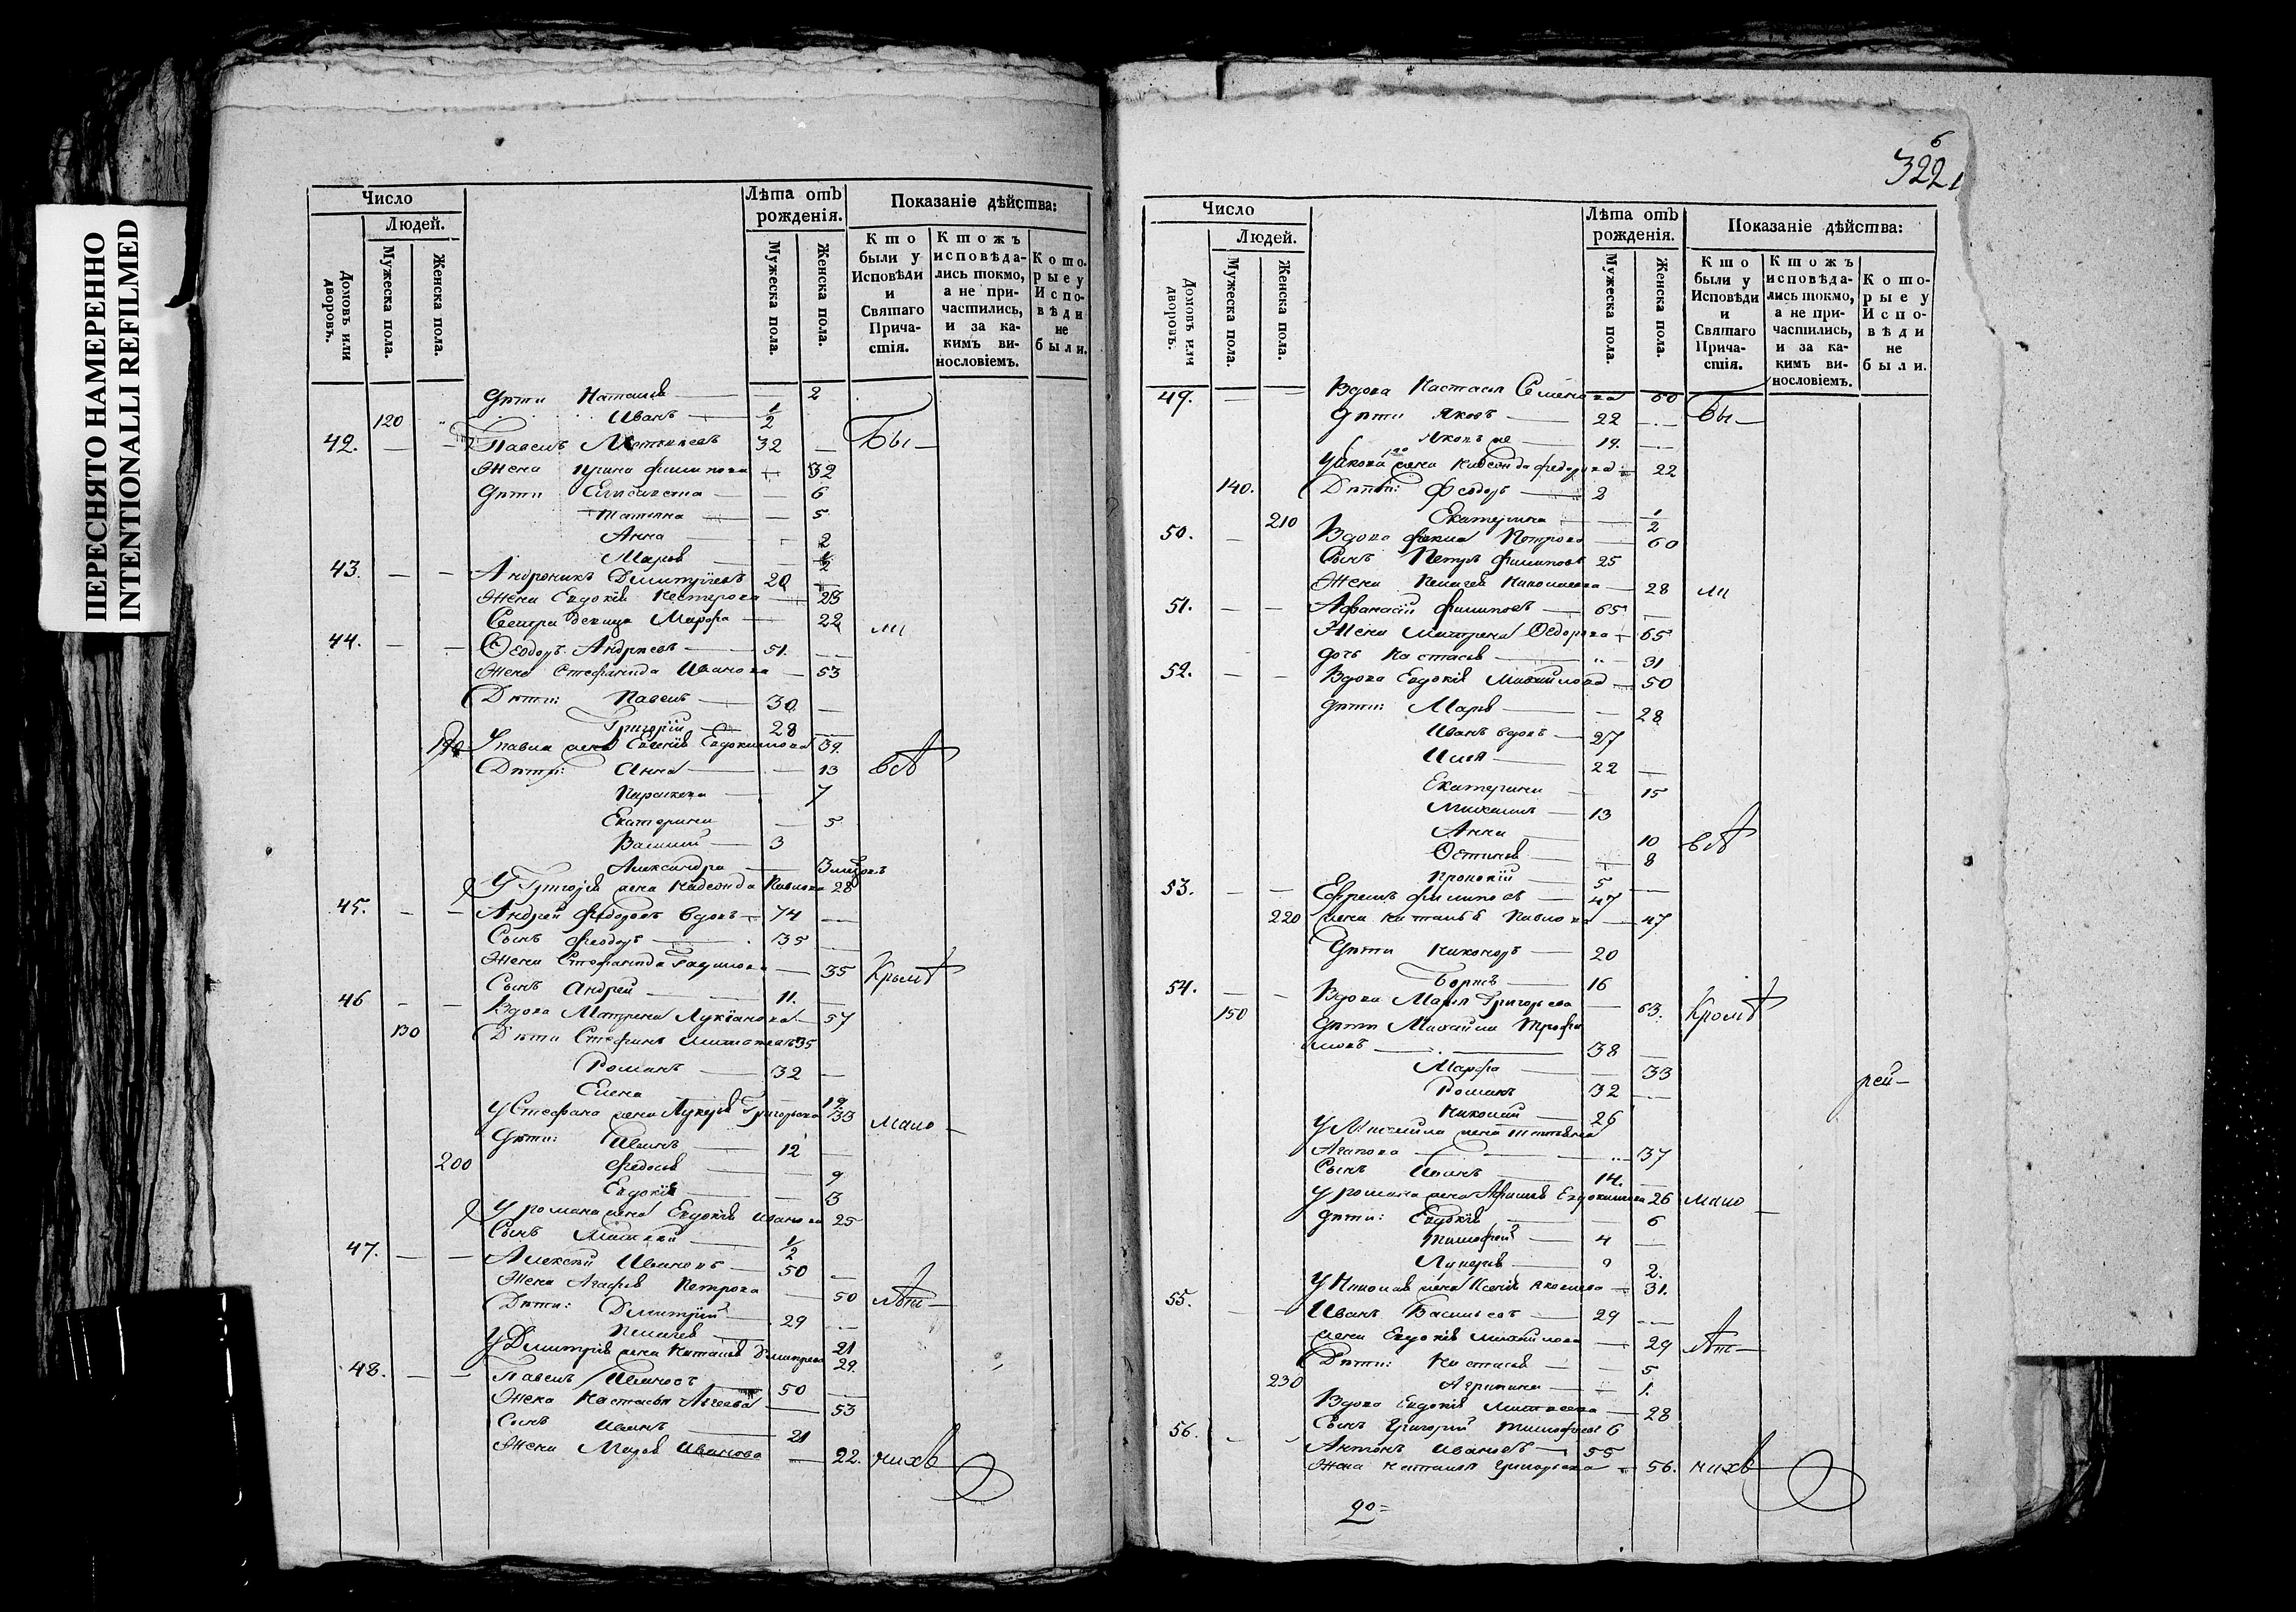 ПЕРЕСНЯТО НАМЕРЕННО
INTENTIONALLI REFILMED
Число
Людей.
Домовъ или дворовъ.
Мужеска пола.
Женска пола.
Лѣта отъ рожденія.
Мужеска пола.
Женска пола.
Показаніе дѣйства:
Кто были у Исповѣди и Святаго Причастія.
Ктожъ исповѣдались токмо, а не причастились, и за какимъ винословіемъ.
Которые у Исповѣди не были.
Дѣти Наталья — 2
120 Иванъ — 1/2
42. — — Павелъ 32 — Бы—
Жена Ирина Филипова — 32
Дѣти Елисавета — 6
Татьяна — 5
Анна — 2
Марья — 1/2
43. — — Андроникъ Димитріевъ 20 —
Жена Евдокія Нестерова — 23
Сестра девица Марфа — 22 ли
44. — — Ѳеодоръ Андреевъ — 51. —
Жена Стефанида Иванова — 53
Дѣти: Павелъ — 30 —
Григорій — 28 —
190 У павла жена Евгенія Евдокимова 39.
Дѣти: Анна — 13 вс
Параскева — 7
Екатерина — 5
Василій — 3
Александра —
У Григорія жена Павлова 28
45. — — Андрей Федоровъ вдовъ — 74 —
Сынъ Феодоръ — 35 —
Жена Стефанида — 35 Кромѣ
Сынъ Андрей — 11. —
46 — — Вдова Матрена Лукіанова — 57
130 Дѣти Стефанъ 35
Романъ — 32 —
Елена — 19
У Стефана жена Григорьева 33 мало—
Дѣти: Иванъ — 12 —
200 Федосья — 9
Евдокія — 3
У романа жена Евдокія Иванова 25
Сынъ — 1/2
47. — — Алексѣй Ивановъ — 50 —
Жена Агафья Петрова — 50 лѣт—
Дѣти: Димитрій — 29 —
Пелагея — 21
У Димитрія жена Наталья 29.
48. — — Павелъ Ивановъ 50 —
Жена Настасья — 53
Сынъ Иванъ — 21
Жена Марья Иванова — 22. нихъ
6
322
Число
Людей.
Домовъ или дворовъ.
Мужеска пола.
Женска пола.
Лѣта отъ рожденія.
Мужеска пола.
Женска пола.
Показаніе дѣйства:
Кто были у Исповѣди и Святаго Причастія.
Ктожъ исповѣдались токмо, а не причастились, и за какимъ винословіемъ.
Которые у Исповѣди не были.
49. — — Вдова Настасья Семенова 60
Дѣти Яковъ — 22 — Бы—
Яковъ же — 19. —
жена Федорова — 22
140. Дѣти: Феодоръ — 2
210 Екатерина — 1/2
50. — Вдова Петрова — 60
Сынъ Петръ Филиповъ 25
Жена Пелагея Николаева — 28 ли
51. — — Афанасій Филиповъ — 65 —
Жена Матрена Ѳедорова — 65
дочь Настасья — 31
52. — — Вдова Евдокія Михайлова — 50
Дѣти: Марья — 28
Иванъ вдовъ — 27
Илья — 22 —
Екатерина — 15
Михаилъ — 13
Анна — 10 вс
Устинья — 8
Прокопій — 5 —
53. — — Ефремъ Филиповъ — 47
220 жена Наталья Павлова — 47
Дѣти Никоноръ — 20
Борисъ — 16
54. — — Вдова Марья Григорьева — 63. Кромѣ
150 Дѣти Михайла Трофи
мовъ — 38 —
Марфа — 33 рей—
Романъ 32 —
Николай — 26
У Михайла жена Татьяна
Агапова — 37
Сынъ Иванъ — 14. —
У романа жена Евдокимова 26 мало—
Дѣти: Евдокія — 6
Тимофей — 4 —
Лукерья — 2.
У Николая жена Ксенія Яковлева — 31.
55. — — Иванъ Васильевъ — 29 —
жена Евдокія Михайлова — 29 лѣт—
Дѣти: Настасья — 5
230 Агрипина — 1.
Вдова Евдокія — 28
Сынъ Григорій Тимофеевъ 6
56. — — Антонъ Ивановъ — 55
Жена Наталья Григорьева — 56. нихъ